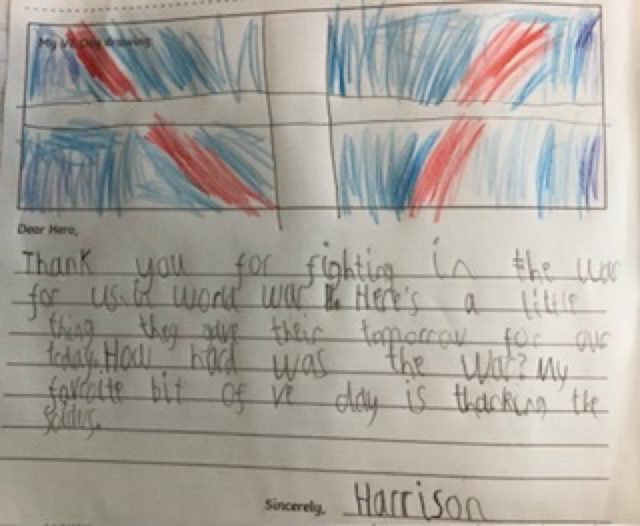 My VE Day drawing:
Dear Hero,
Thank you for fighting in the war
for us. world war II. Here's a little
thing they gave their tomorrow for our
today. How hard was the War? My
favroite bit of ve day is thacking the
Sincerely, Harrison